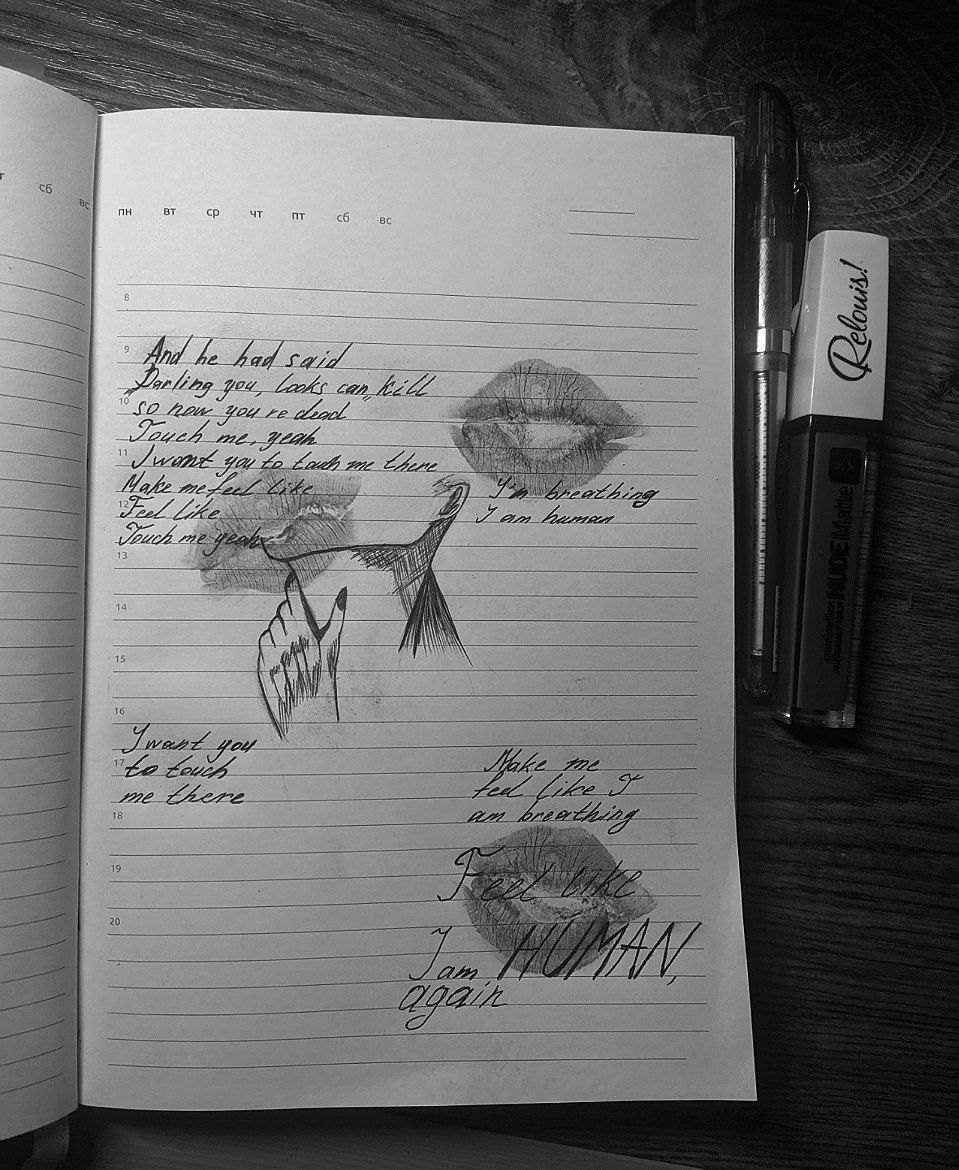 т сб вс
пн вт ср чт пт сб вс
8
9
And he had said
Darling you, looks can„ kill
10
so now you're dead
Touch me, yeah
11
I want you to touch me there
Make me feel like
12
Feel like
Touch me yeah
I'm breathing
I am human
13
14
15
16
I want you
17
to touch
me there
Make me
feel like I
am breathing
18
19
Feel like
20
I am HUMAN,
again
Relouis!
NUDE Matte